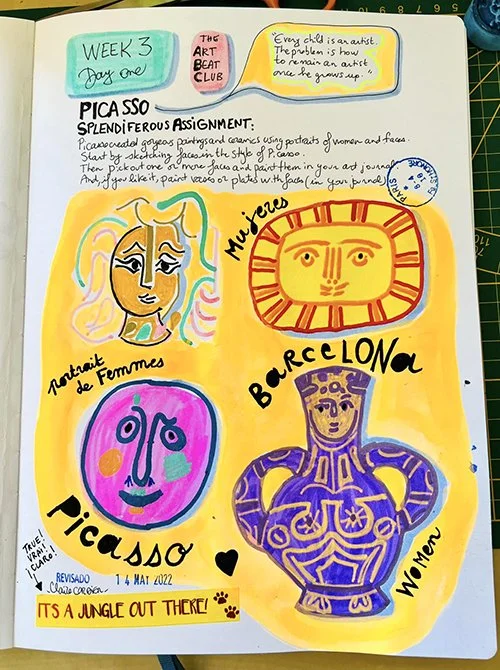 WEEK 3
Day one
THE
ART
BEAT
CLUB
"Every child is an artist.
The problem is how
to remain an artist
once he grows up."
PICASSO
SPLENDIFEROUS ASSIGNMENT:
Picasso created gorgeous paintings and ceramics using portraits of women and faces.
Start by sketching faces in the style of Picasso.
Then pick out one or more faces and paint them in your art journal.
And, if you like it, paint vases or plates with faces (in your journal)
PARIS
Mujeres
Portrait
de Femmes
BARCELONA
Picasso
Women
TRUE!
VRAI!
¡CLARO!
REVISADO
14 MAY 2022
IT'S A JUNGLE OUT THERE!